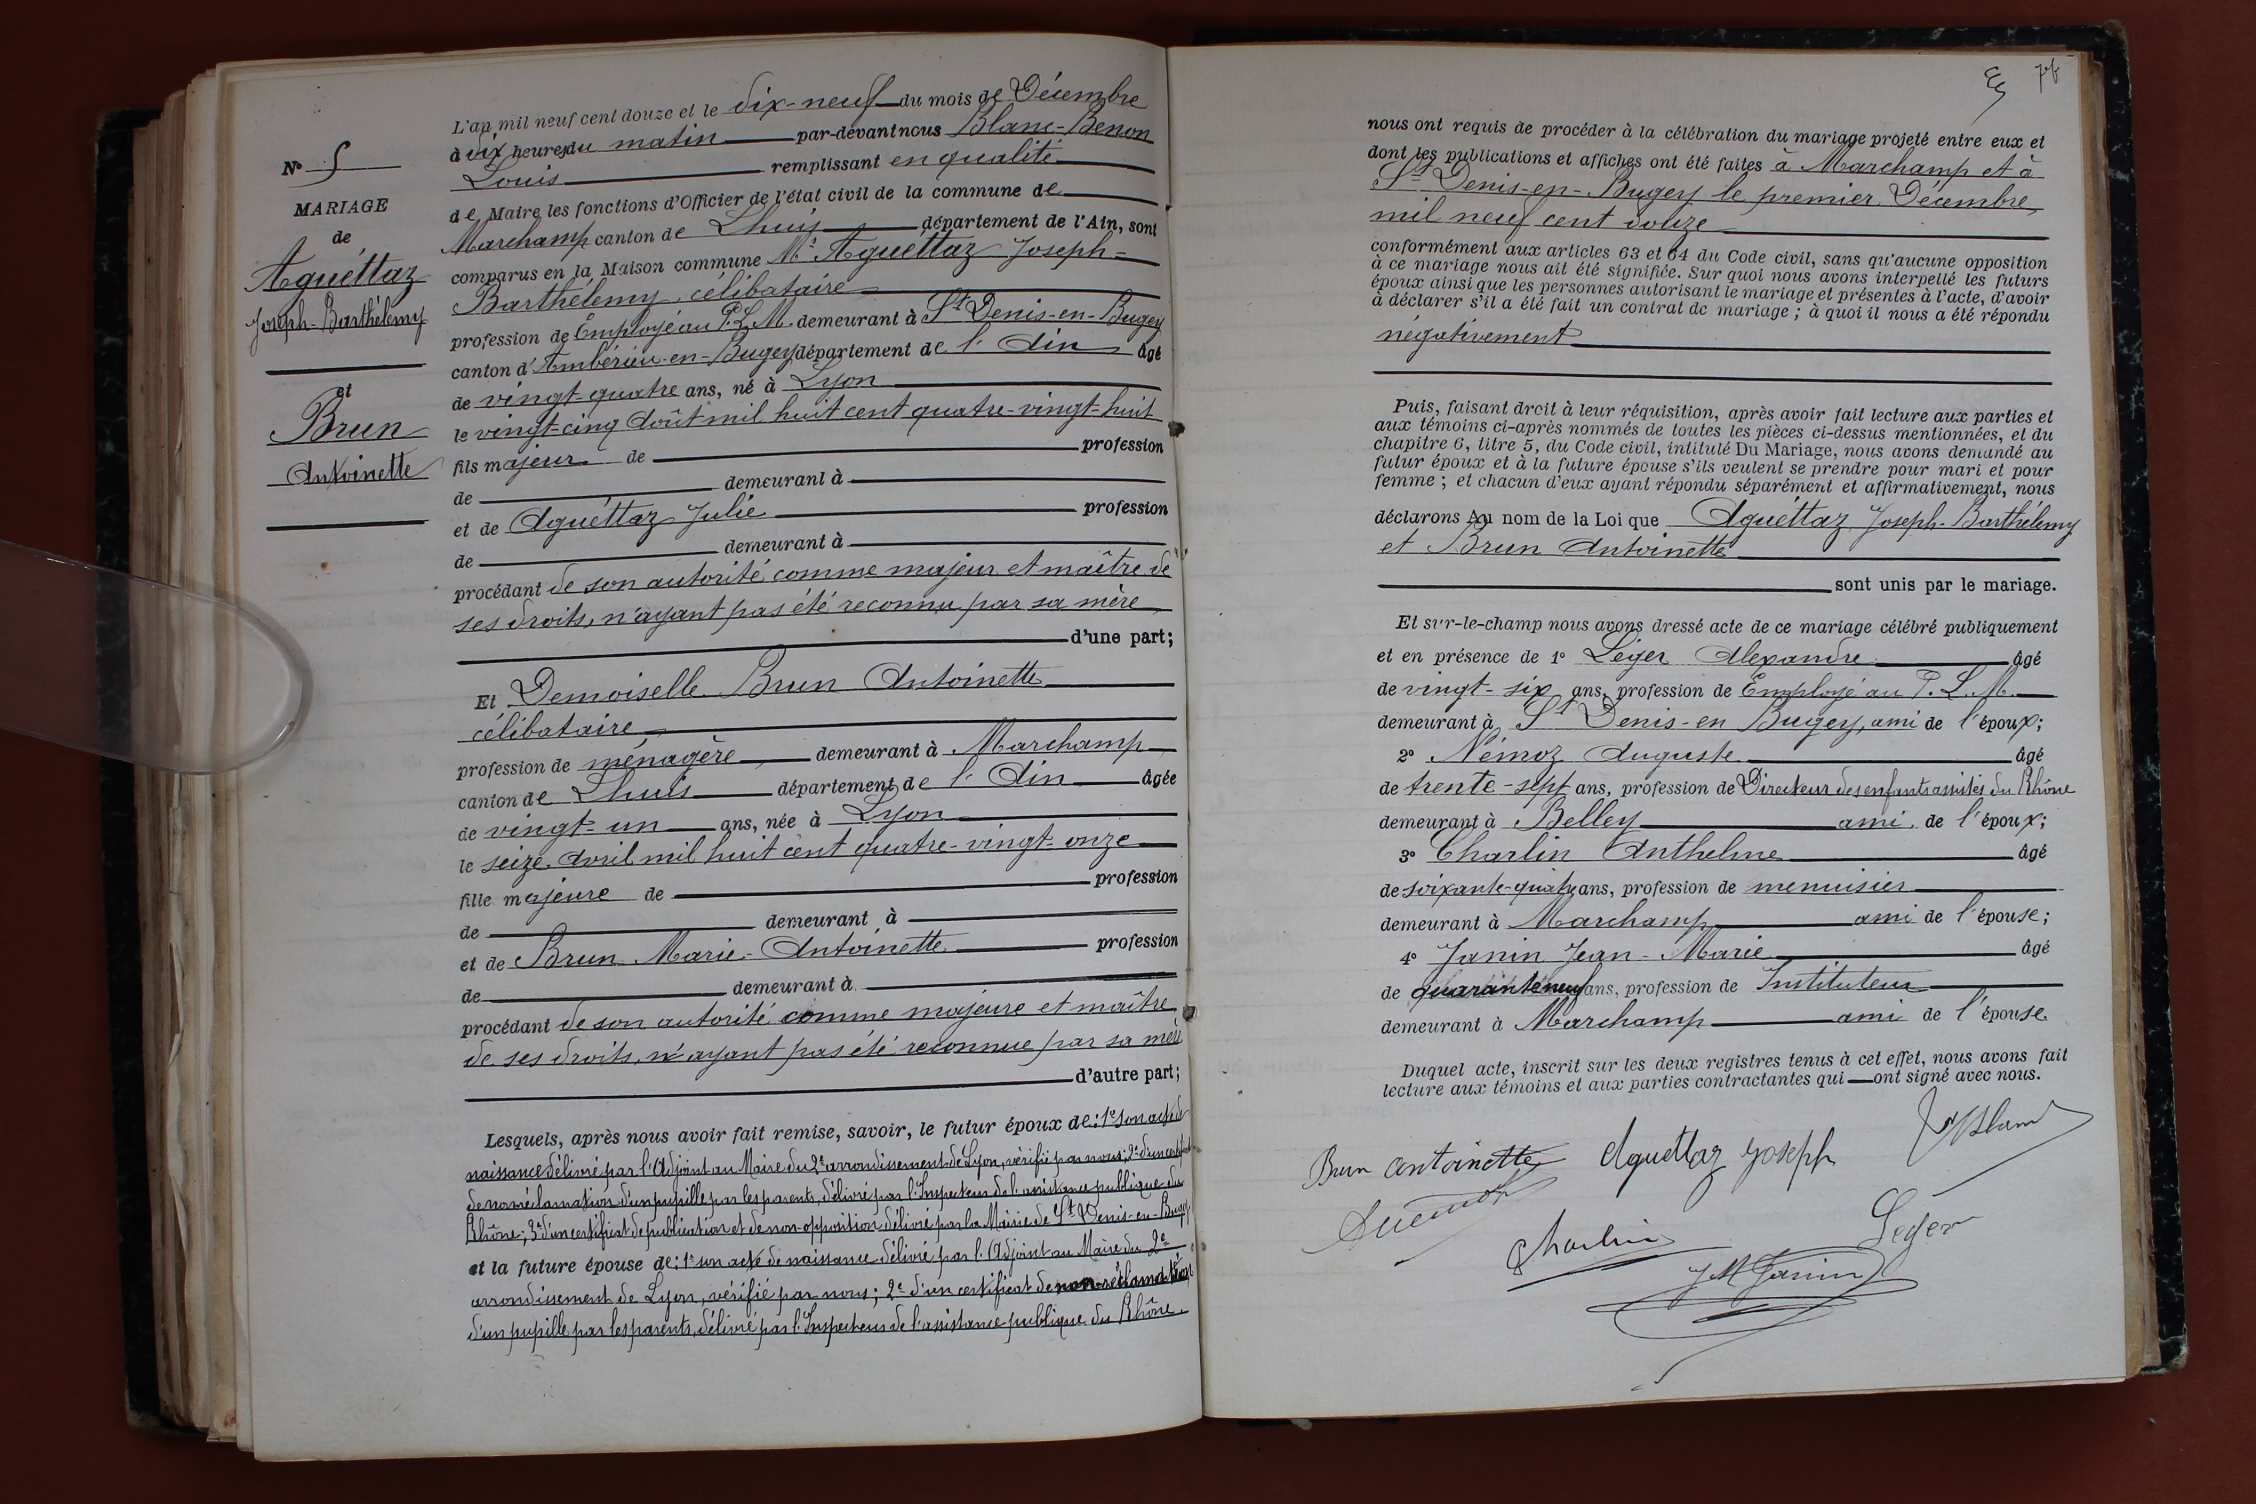 N° 5
MARIAGE
de
Aguéttaz
Joseph-Barthélemy
et
Brun
Antoinette
L'an mil neuf cent douze et le dix-neuf du mois de Décembre
à dix heures du matin par-devant nous Blanc-Benon
Louis remplissant en qualité
de Maire les fonctions d'Officier de l'état civil de la commune de
Marchamp canton de Lhuis département de l'Ain, sont
comparus en la Maison commune Mr Aguéttaz Joseph-
Barthélemy, célibataire
profession de Employé au P.L.M. demeurant à St Denis-en-Bugey
canton d'Ambérieu-en-Bugey département de l'Ain âgé
de vingt-quatre ans, né à Lyon
le vingt-cinq Août mil huit cent quatre-vingt-huit
fils majeur de profession
de demeurant à
et de Aguéttaz Julie profession
de demeurant à
procédant de son autorité comme majeur et maître de
ses droits, n'ayant pas été reconnu par sa mère
d'une part;
Et Demoiselle Brun Antoinette
célibataire
profession de ménagère demeurant à Marchamp
canton de Lhuis département de l'Ain âgée
de vingt-un ans, née à Lyon
le seize Avril mil huit cent quatre-vingt-onze
fille majeure de profession
de demeurant à
et de Brun Marie-Antoinette profession
de demeurant à
procédant de son autorité comme majeure et maître
de ses droits, n'ayant pas été reconnue par sa mère
d'autre part;
Lesquels, après nous avoir fait remise, savoir, le futur époux de: 1° son acte de
naissance délivré par l'Adjoint au Maire du 2e arrondissement de Lyon, vérifié par nous; 2° d'un certificat
de non réclamation d'un pupille par les parents, délivré par l'Inspecteur de l'assistance publique du
Rhône; 3° d'un certificat de publication et de non-opposition délivré par la Mairie de St Denis-en-Bugey,
et la future épouse de: 1° son acte de naissance délivré par l'Adjoint au Maire du 2e
arrondissement de Lyon, vérifié par nous; 2° d'un certificat de non-réclamation
d'un pupille par les parents, délivré par l'Inspecteur de l'assistance publique du Rhône.
nous ont requis de procéder à la célébration du mariage projeté entre eux et
dont les publications et affiches ont été faites à Marchamp et à
St Denis-en-Bugey le premier Décembre
mil neuf cent douze
conformément aux articles 63 et 64 du Code civil, sans qu'aucune opposition
à ce mariage nous ait été signifiée. Sur quoi nous avons interpellé les futurs
époux ainsi que les personnes autorisant le mariage et présentes à l'acte, d'avoir
à déclarer s'il a été fait un contrat de mariage; à quoi il nous a été répondu
négativement
Puis, faisant droit à leur réquisition, après avoir fait lecture aux parties et
aux témoins ci-après nommés de toutes les pièces ci-dessus mentionnées, et du
chapitre 6, titre 5, du Code civil, intitulé Du Mariage, nous avons demandé au
futur époux et à la future épouse s'ils veulent se prendre pour mari et pour
femme; et chacun d'eux ayant répondu séparément et affirmativement, nous
déclarons Au nom de la Loi que Aguéttaz Joseph-Barthélemy
et Brun Antoinette
sont unis par le mariage.
Et sur-le-champ nous avons dressé acte de ce mariage célébré publiquement
et en présence de 1° Léger Alexandre âgé
de vingt-six ans, profession de Employé au P.L.M.
demeurant à St Denis-en Bugey, ami de l'époux;
2° Némoz Auguste âgé
de trente-sept ans, profession de Directeur des enfants assistés du Rhône
demeurant à Belley ami de l'époux;
3° Charlin Anthelme âgé
de soixante-quatre ans, profession de menuisier
demeurant à Marchamp ami de l'épouse;
4° Janin Jean-Marie âgé
de quarante neuf ans, profession de Instituteur
demeurant à Marchamp ami de l'épouse.
Duquel acte, inscrit sur les deux registres tenus à cet effet, nous avons fait
lecture aux témoins et aux parties contractantes qui ont signé avec nous.
Brun antoinette Aguettaz Joseph
Charlin Leger
JM Janin